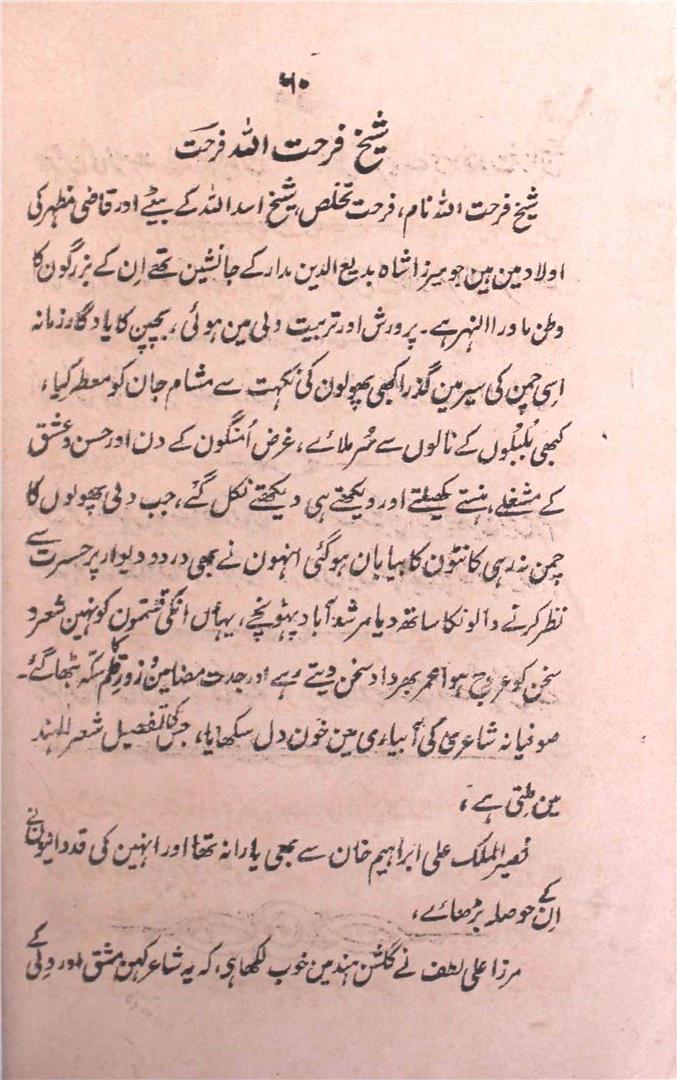 ۶۰
شیخ فرحت اللہ فرحت
شیخ فرحت اللہ نام، فرحت تخلص، شیخ اسد اللہ کے بیٹے اور قاضی مظہر کی
اولاد مین ہین جو میرزا شاہ بدیع الدین مدار کے جانشین تھے اِن کے بزرگون کا
وطن ماوراالنہر ہے۔ پرورش اور تربیت دلی مین ہوئی، بچپن کا یادگار زمانہ
اسی چمن کی سیر مین گذرا کبھی پھولون کی نکہت سے مشام جان کو معطر کیا،
کبھی بُلبُلوں کے نالوں سے سُر ملاے، غرض اُمنگون کے دن اور حسن و عشق
کے مشغلے، ہنستے کھیلتے اور دیکھتے ہی دیکھتے نکل گئے، جب دلی پھولوں کا
چمن نہ رہی کانٹون کا بیابان ہوگئی انہون نے بھی در و دیوار پر حسرت سے
نظر کرنے والونکا ساتھ دیا مرشد آباد پہونچے، یہاں انکی قسمتون کو نہین شعر و
سخن کو عروج ہوا عمر بھر داد سخن دیتے رہے اور جدت مضامین و زور قلم کا سکہ بٹھا گئے۔
صوفیانہ شاعری کی آبیاری مین خون دل سکھایا، جس کی تفصیل شعر الہند
مین ملتی ہے،
نصیر الملک علی ابراہیم خان سے بھی یارانہ تھا اور انہین کی قدردانیون نے
اِن کے حوصلہ بڑھاے،
مرزا علی لطف نے گلشن ہند مین خوب لکھا ہی، کہ یہ شاعر کہن مشق اور دلی کے